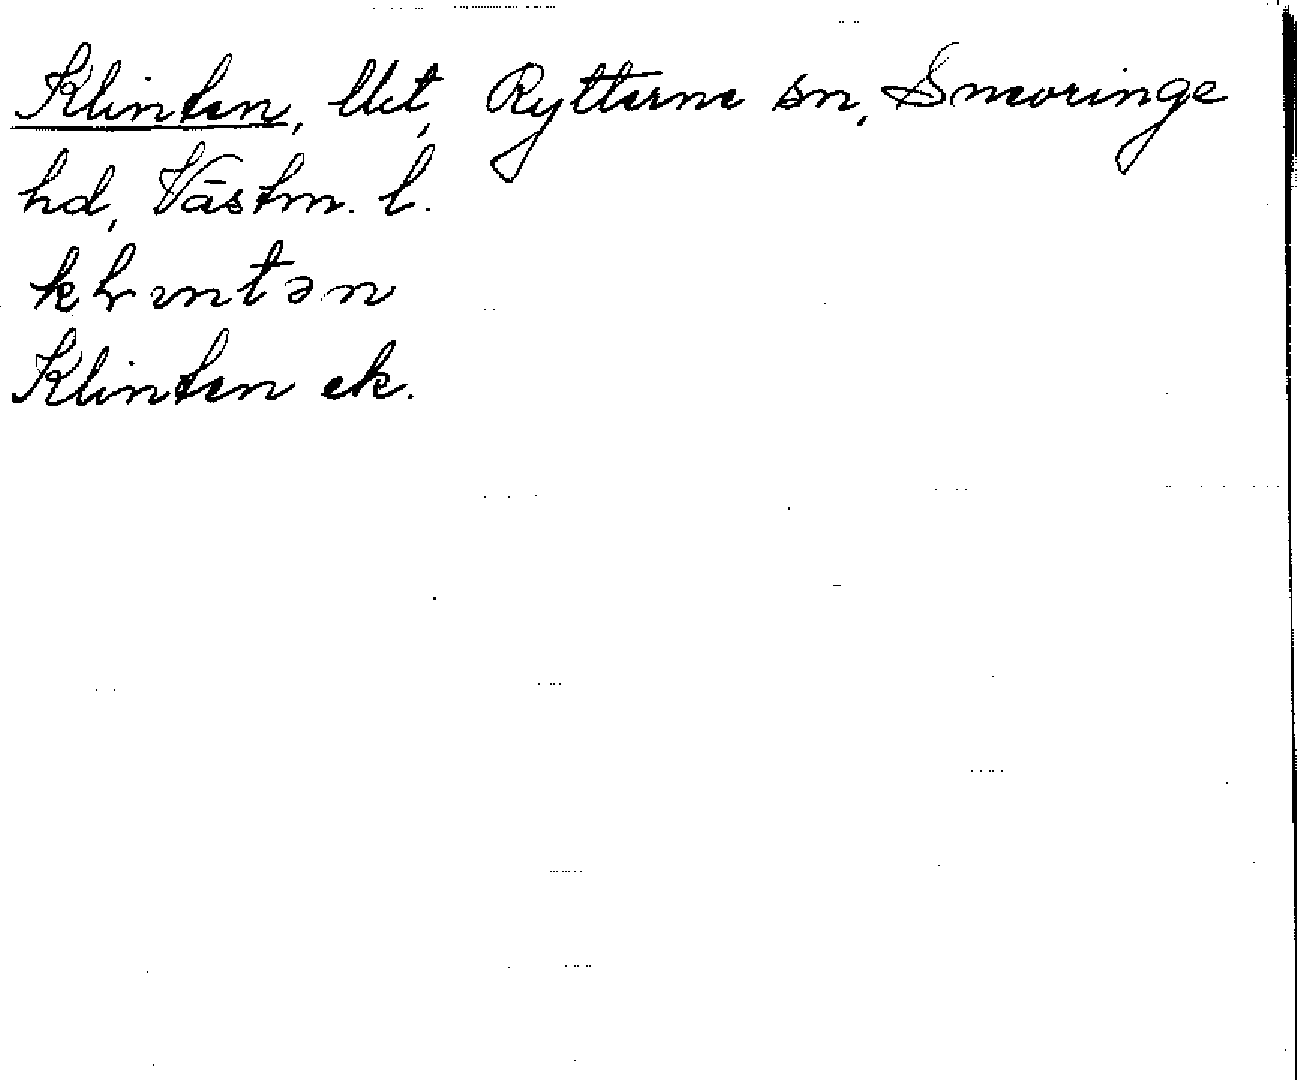 Klinten, Rytterne sn, Snevringe
hd, Västm. l.
Klinten ek.